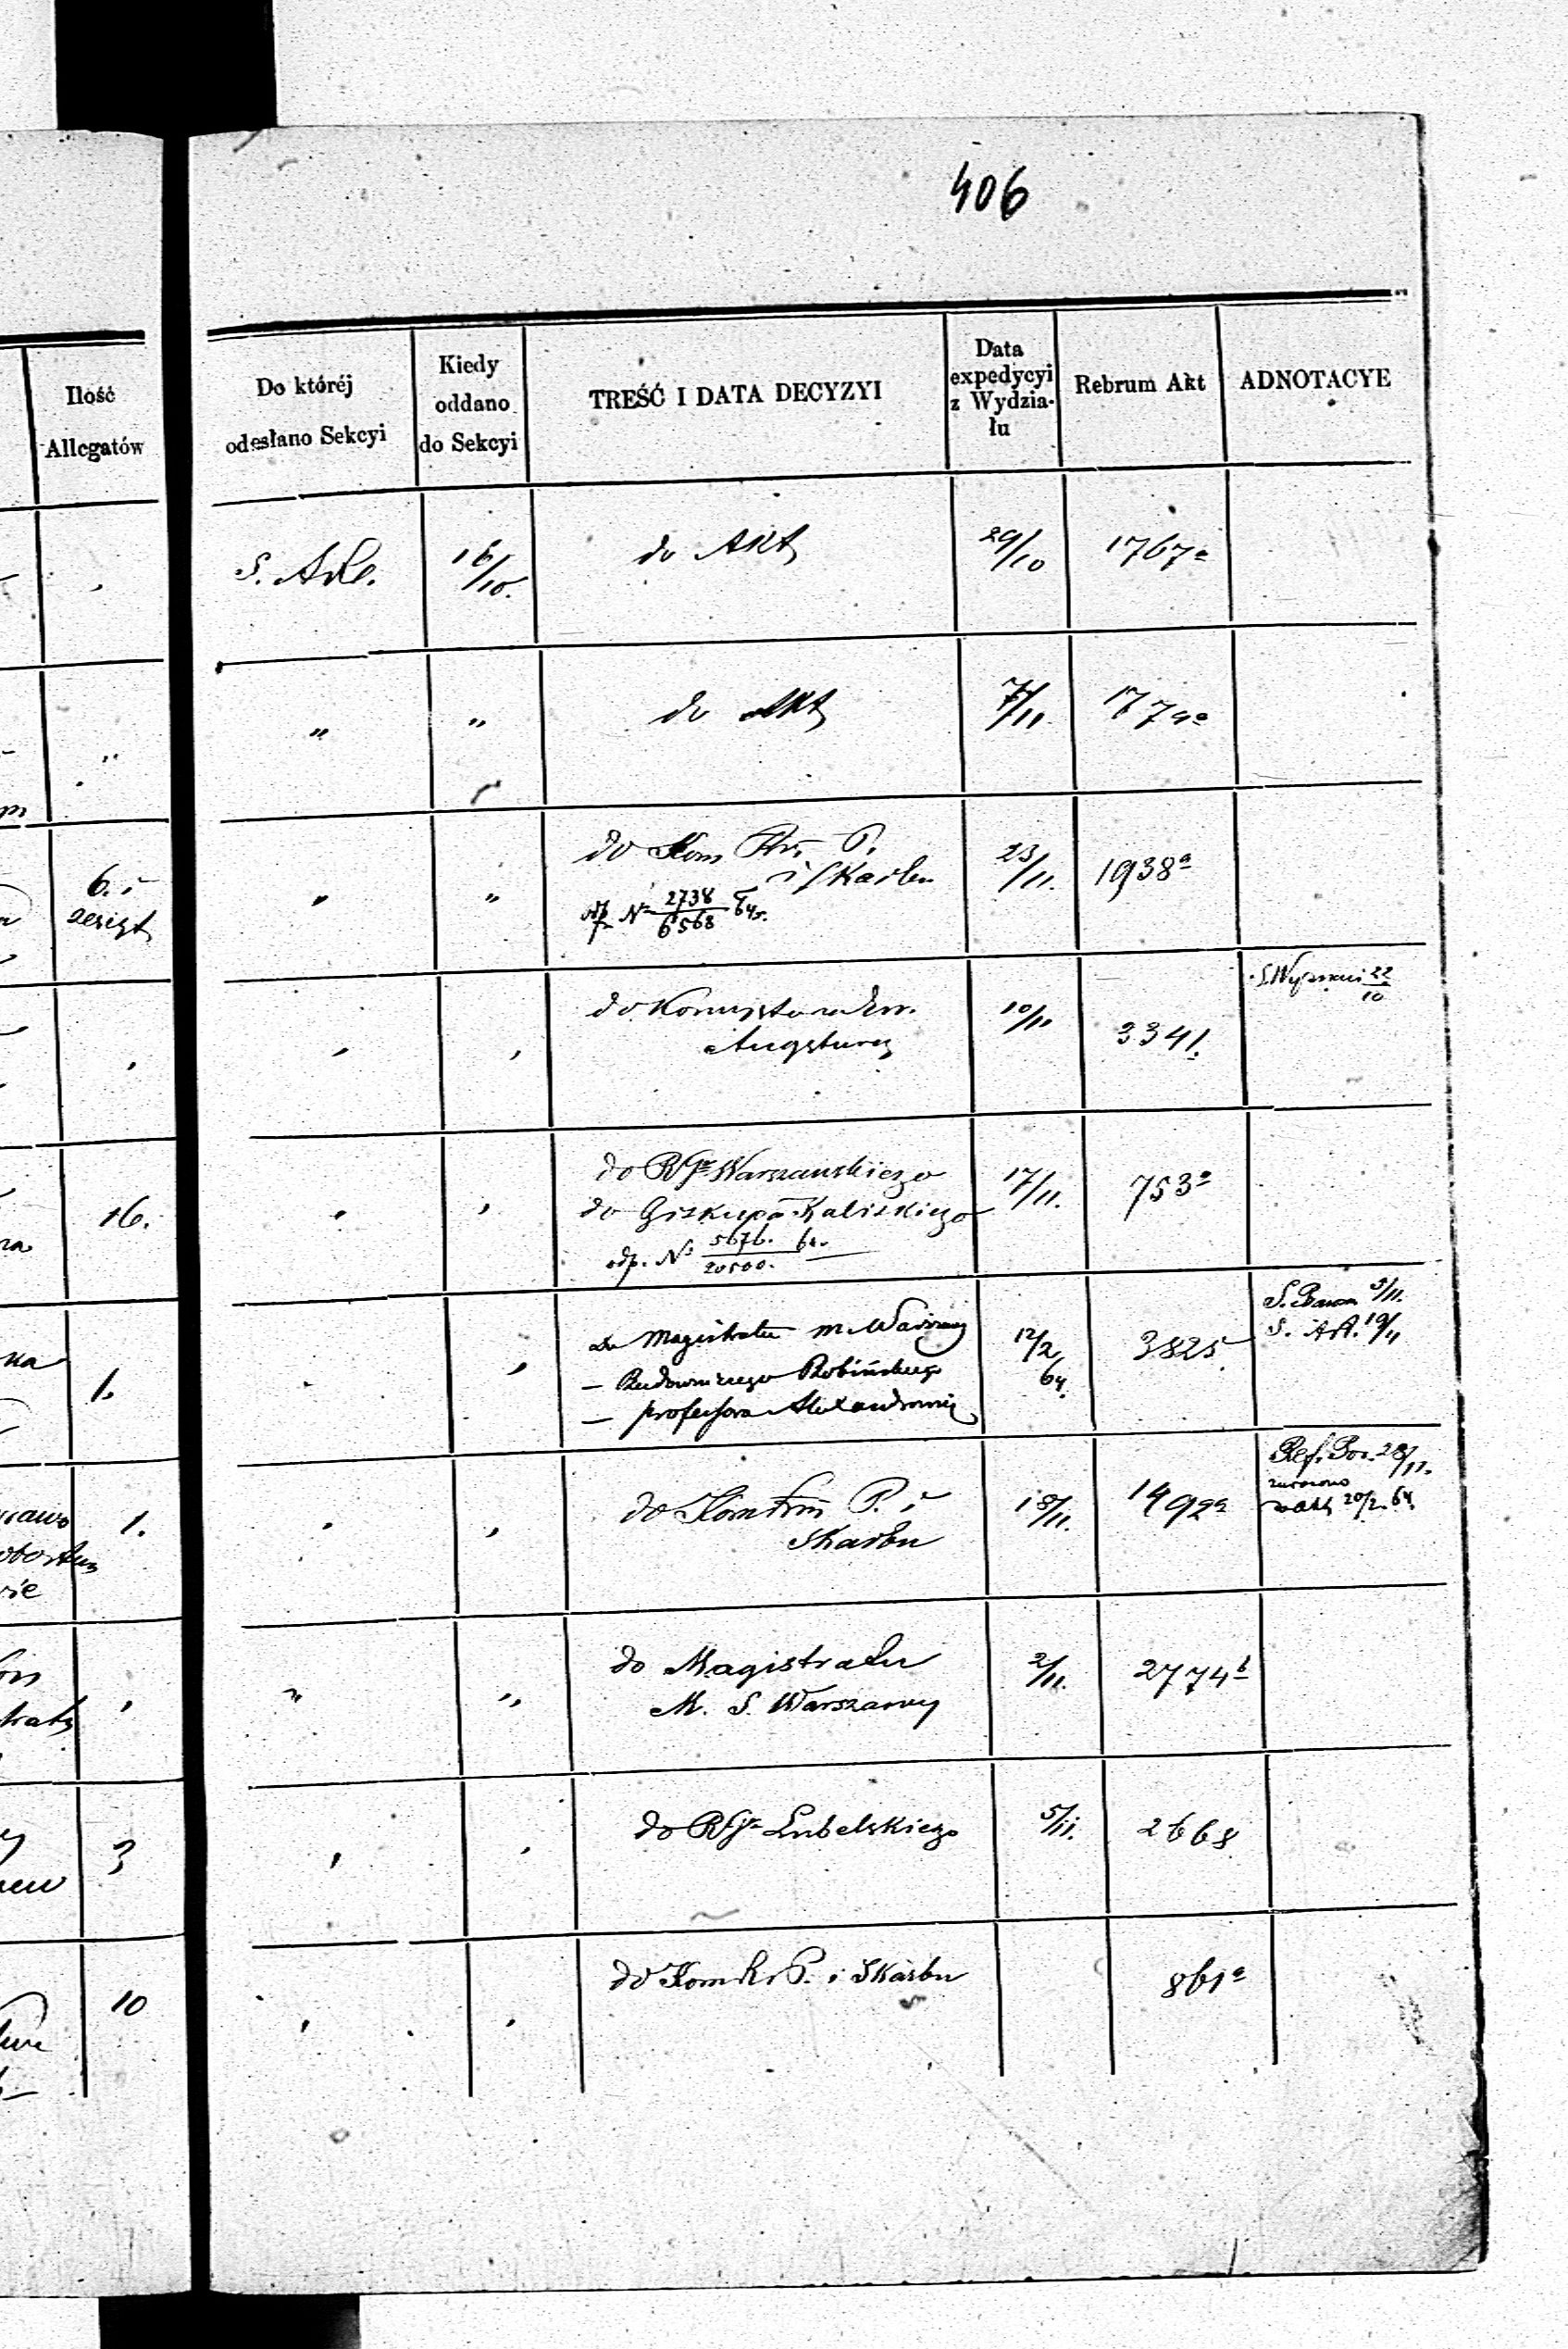 406
Ilość
Allegatów
Do któréj
odesłano Sekcyi
Kiedy
oddano
do Sekcyi
TREŚĆ I DATA DECYZYI
Data
expedycyi
z Wydzia-
łu
Rebrum Akt
ADNOTACYE
16/10.
do Akt
29/10
1767a
"
"
"
do Akt
7/11
6. i
zeszyt
"
"
do Kom P.
i Skarbu
odp. No 2738/6568 64r.
23/11.
1938a
do Konsystorza Ew.
Augsburg
10/11
3341.
22/10
16.
do RGr Warszawskiego
do Biskupa Kaliskiego
odp. No 5676./20500.
17/11.
753a
1.
do Magistratu m. Warszawy
— Budowniczego
— professora Alexandrowicz
12/2
64.
3825
3/11.
S. Art. 19/11
1.
do Kom P. i
Skarbu
18/11.
1492a
28/11.
zwrócono
20/2 64.
"
"
do Magistratu
M. S. Warszawy
2/11.
2774b
3
do RGr Lubelskiego
5/11.
2668
10
do Kom R. P. i Skarbu
861a